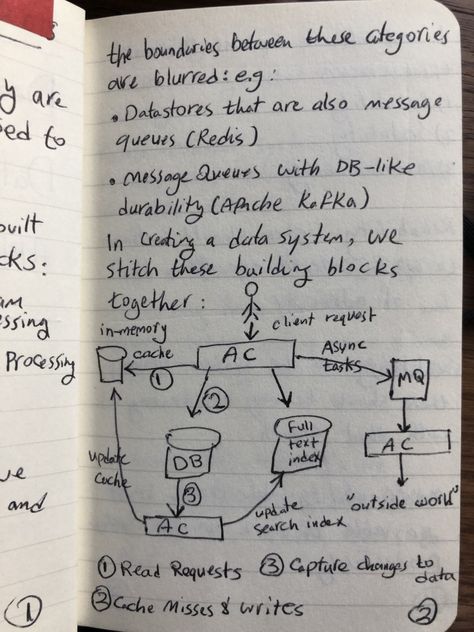 y are
ed to
built
cks:
am
essing
Processing
ve
and
①
the boundaries between these categories
are blurred: e.g:
• Datastores that are also message
queues (Redis)
• Message Queues with DB-like
durability (Apache Kafka)
In creating a data system, we
stitch these building blocks
together:
client request
in-memory
cache
①
AC
Async
tasks
MQ
②
DB
Full
text
index
AC
update
cache
③
AC
update
search index
"outside world"
① Read Requests ③ Capture changes to
data
② Cache Misses & writes
②